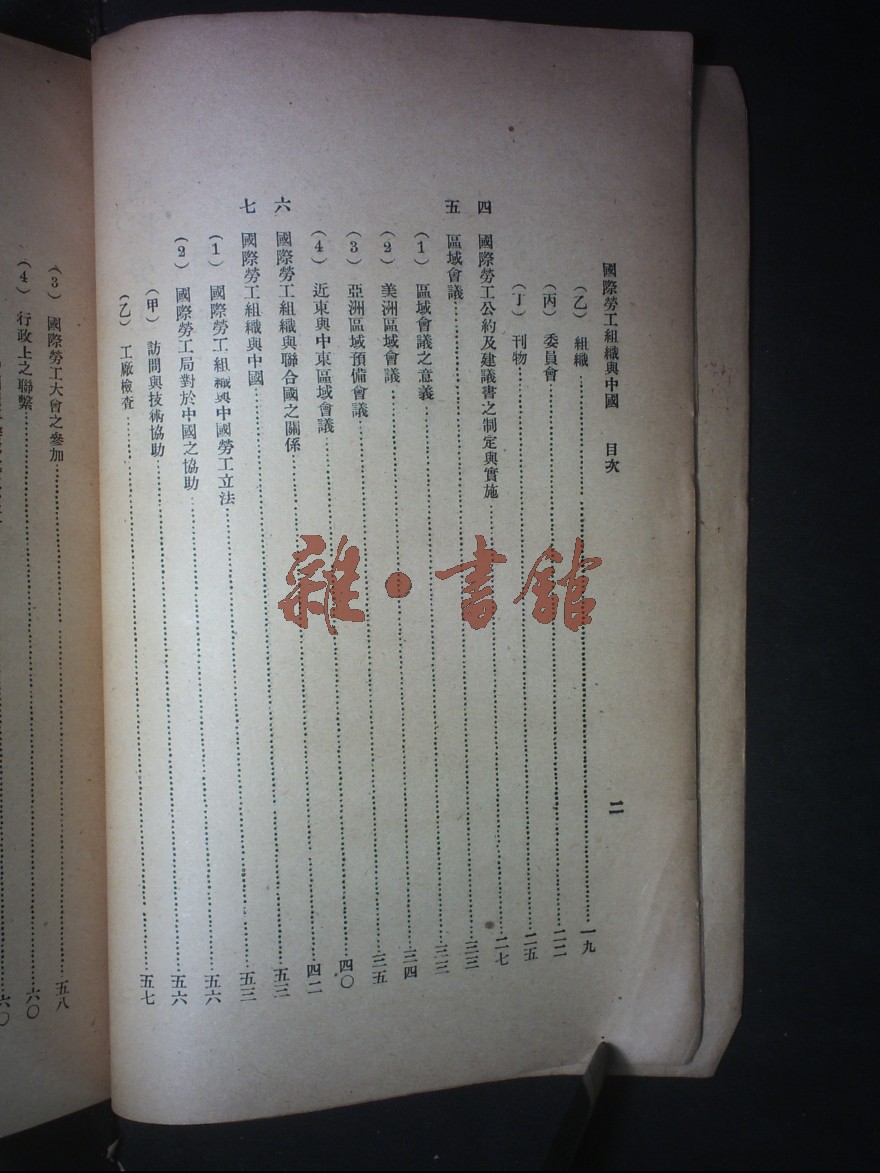 國際勞工組織與中國　目次　二
（乙）組織……一九
（丙）委員會……二二
（丁）刊物……二五
四　國際勞工公約及建議書之制定與實施……二七
五　區域會議……三三
（1）區域會議之意義……三三
（2）美洲區域會議……三四
（3）亞洲區域預備會議……三五
（4）近東與中東區域會議……四〇
六　國際勞工組織與聯合國之關係……四二
七　國際勞工組織與中國……五三
（1）國際勞工組織與中國勞工立法……五三
（2）國際勞工局對於中國之協助……五六
（甲）訪問與技術協助……五六
（乙）工廠檢查……五七
（3）國際勞工大會之參加……五八
（4）行政上之聯繫……六〇
六〇
雜·書館